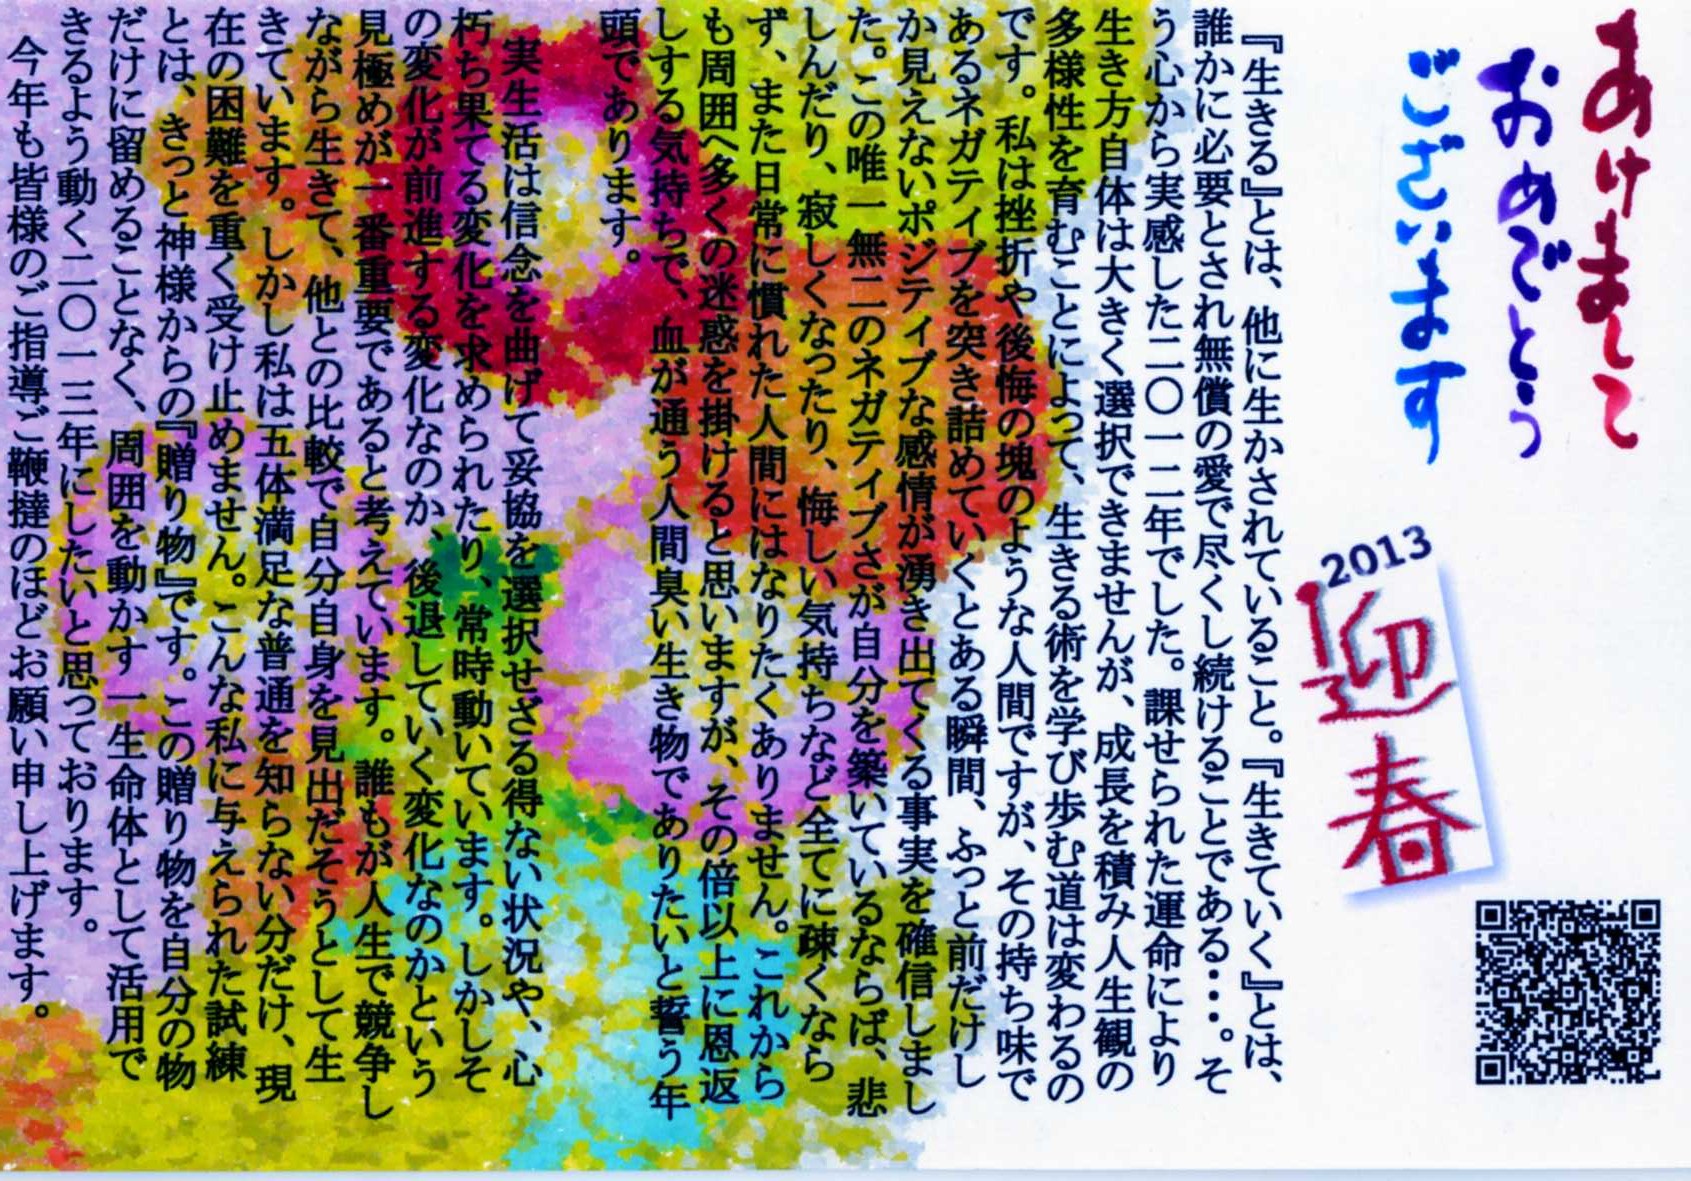 あけまして
おめでとう
ございます
2013
迎春
『生きる』とは、他に生かされていること。『生きていく』とは、
誰かに必要とされ無償の愛で尽くし続けることである・・・。そ
う心から実感した二〇一二年でした。課せられた運命により
生き方自体は大きく選択できませんが、成長を積み人生観の
多様性を育むことによって、生きる術を学び歩む道は変わるの
です。私は挫折や後悔の塊のような人間ですが、その持ち味で
あるネガティブを突き詰めていくとある瞬間、ふっと前だけし
か見えないポジティブな感情が湧き出てくる事実を確信しまし
た。この唯一無二のネガティブさが自分を築いているならば、悲
しんだり、寂しくなったり、悔しい気持ちなど全てに疎くなら
ず、また日常に慣れた人間にはなりたくありません。これから
も周囲へ多くの迷惑を掛けると思いますが、その倍以上に恩返
しする気持ちで、血が通う人間臭い生き物でありたいと誓う年
頭であります。
実生活は信念を曲げて妥協を選択せざる得ない状況や、心
朽ち果てる変化を求められたり、常時動いています。しかしそ
の変化が前進する変化なのか、後退していく変化なのかという
見極めが一番重要であると考えています。誰もが人生で競争し
ながら生きて、他との比較で自分自身を見出だそうとして生
きています。しかし私は五体満足な普通を知らない分だけ、現
在の困難を重く受け止めません。こんな私に与えられた試練
とは、きっと神様からの『贈り物』です。この贈り物を自分の物
だけに留めることなく、周囲を動かす一生命体として活用で
きるよう動く二〇一三年にしたいと思っております。
今年も皆様のご指導ご鞭撻のほどお願い申し上げます。